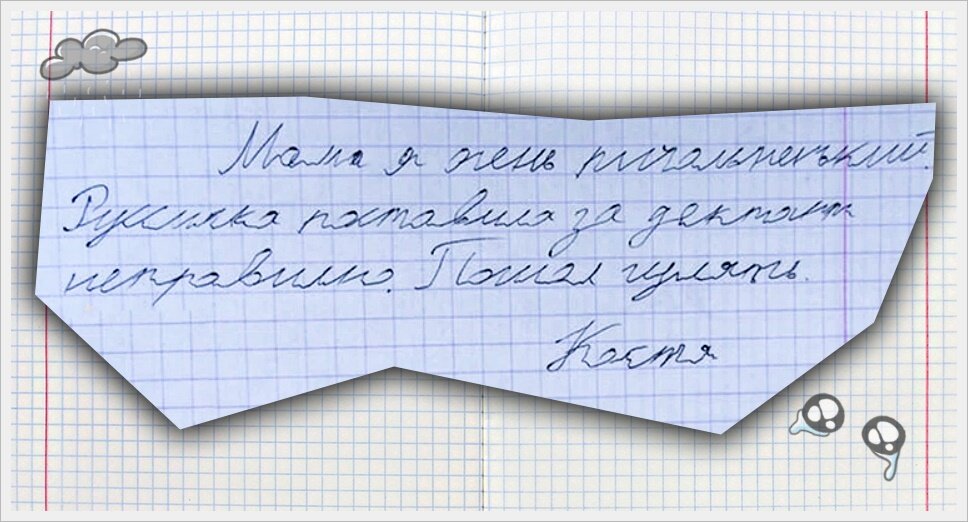 Мама я очень пичальненький.
Руссичка поставила за дектант
неправилно. Пошол гулять.
Костя